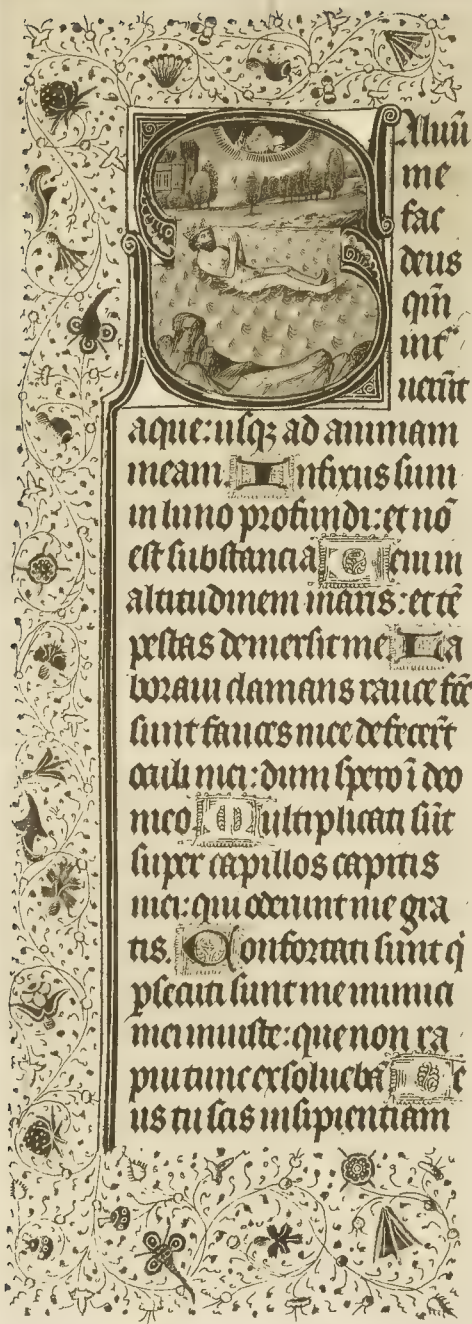 Saluū
me
fac
deus
qm̄
int
uerūt
aque: usqꝫ ad animam
meam. Infixus sum
in limo profundi: et nō
est substancia Veni in
altitudinem maris: et tē
pestas demersit me La
boraui clamans rauce fcē
sunt fauces mee defecer̄t
oculi mei: dum spero ī deo
meo Multiplicati sūt
super capillos capitis
mei: qui oderunt me gra
tis. Confortati sunt q̇
psecuti sunt me inimici
mei iniuste: que non ra
pui tunc exsoluebā De
us tu scis insipientiam